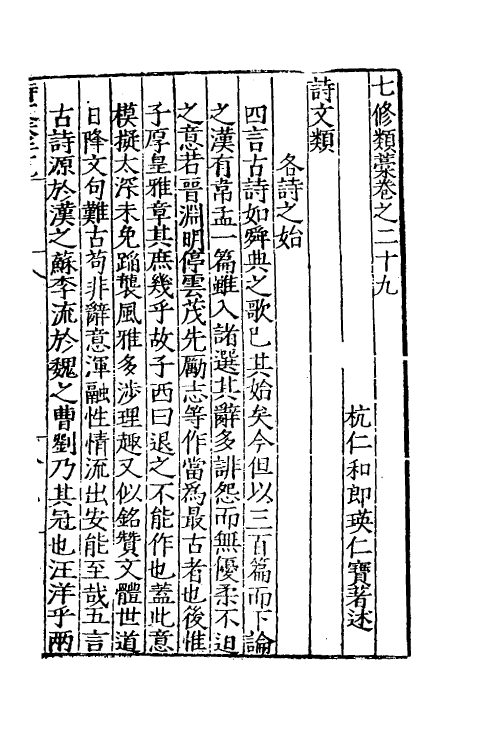 七修類藁卷之二十九
杭仁和郎瑛仁寶著述
詩文類
各詩之始
四言古詩如舜典之歌已其始矣今但以三百篇而下論
之漢有韋孟一篇雖入諸選其辭多誹怨而無優柔不迫
之意若晉淵明停雲茂先勵志等作當為最古者也後惟
子厚皇雅章其庶幾乎故子西曰退之不能作也蓋此意
模擬太深未免蹈襲風雅多涉理趣又似銘贊文體世道
日降文句難古苟非辭意渾融性情流出安能至哉五言
古詩源於漢之蘇李流於魏之曹劉乃其冠也汪洋乎兩